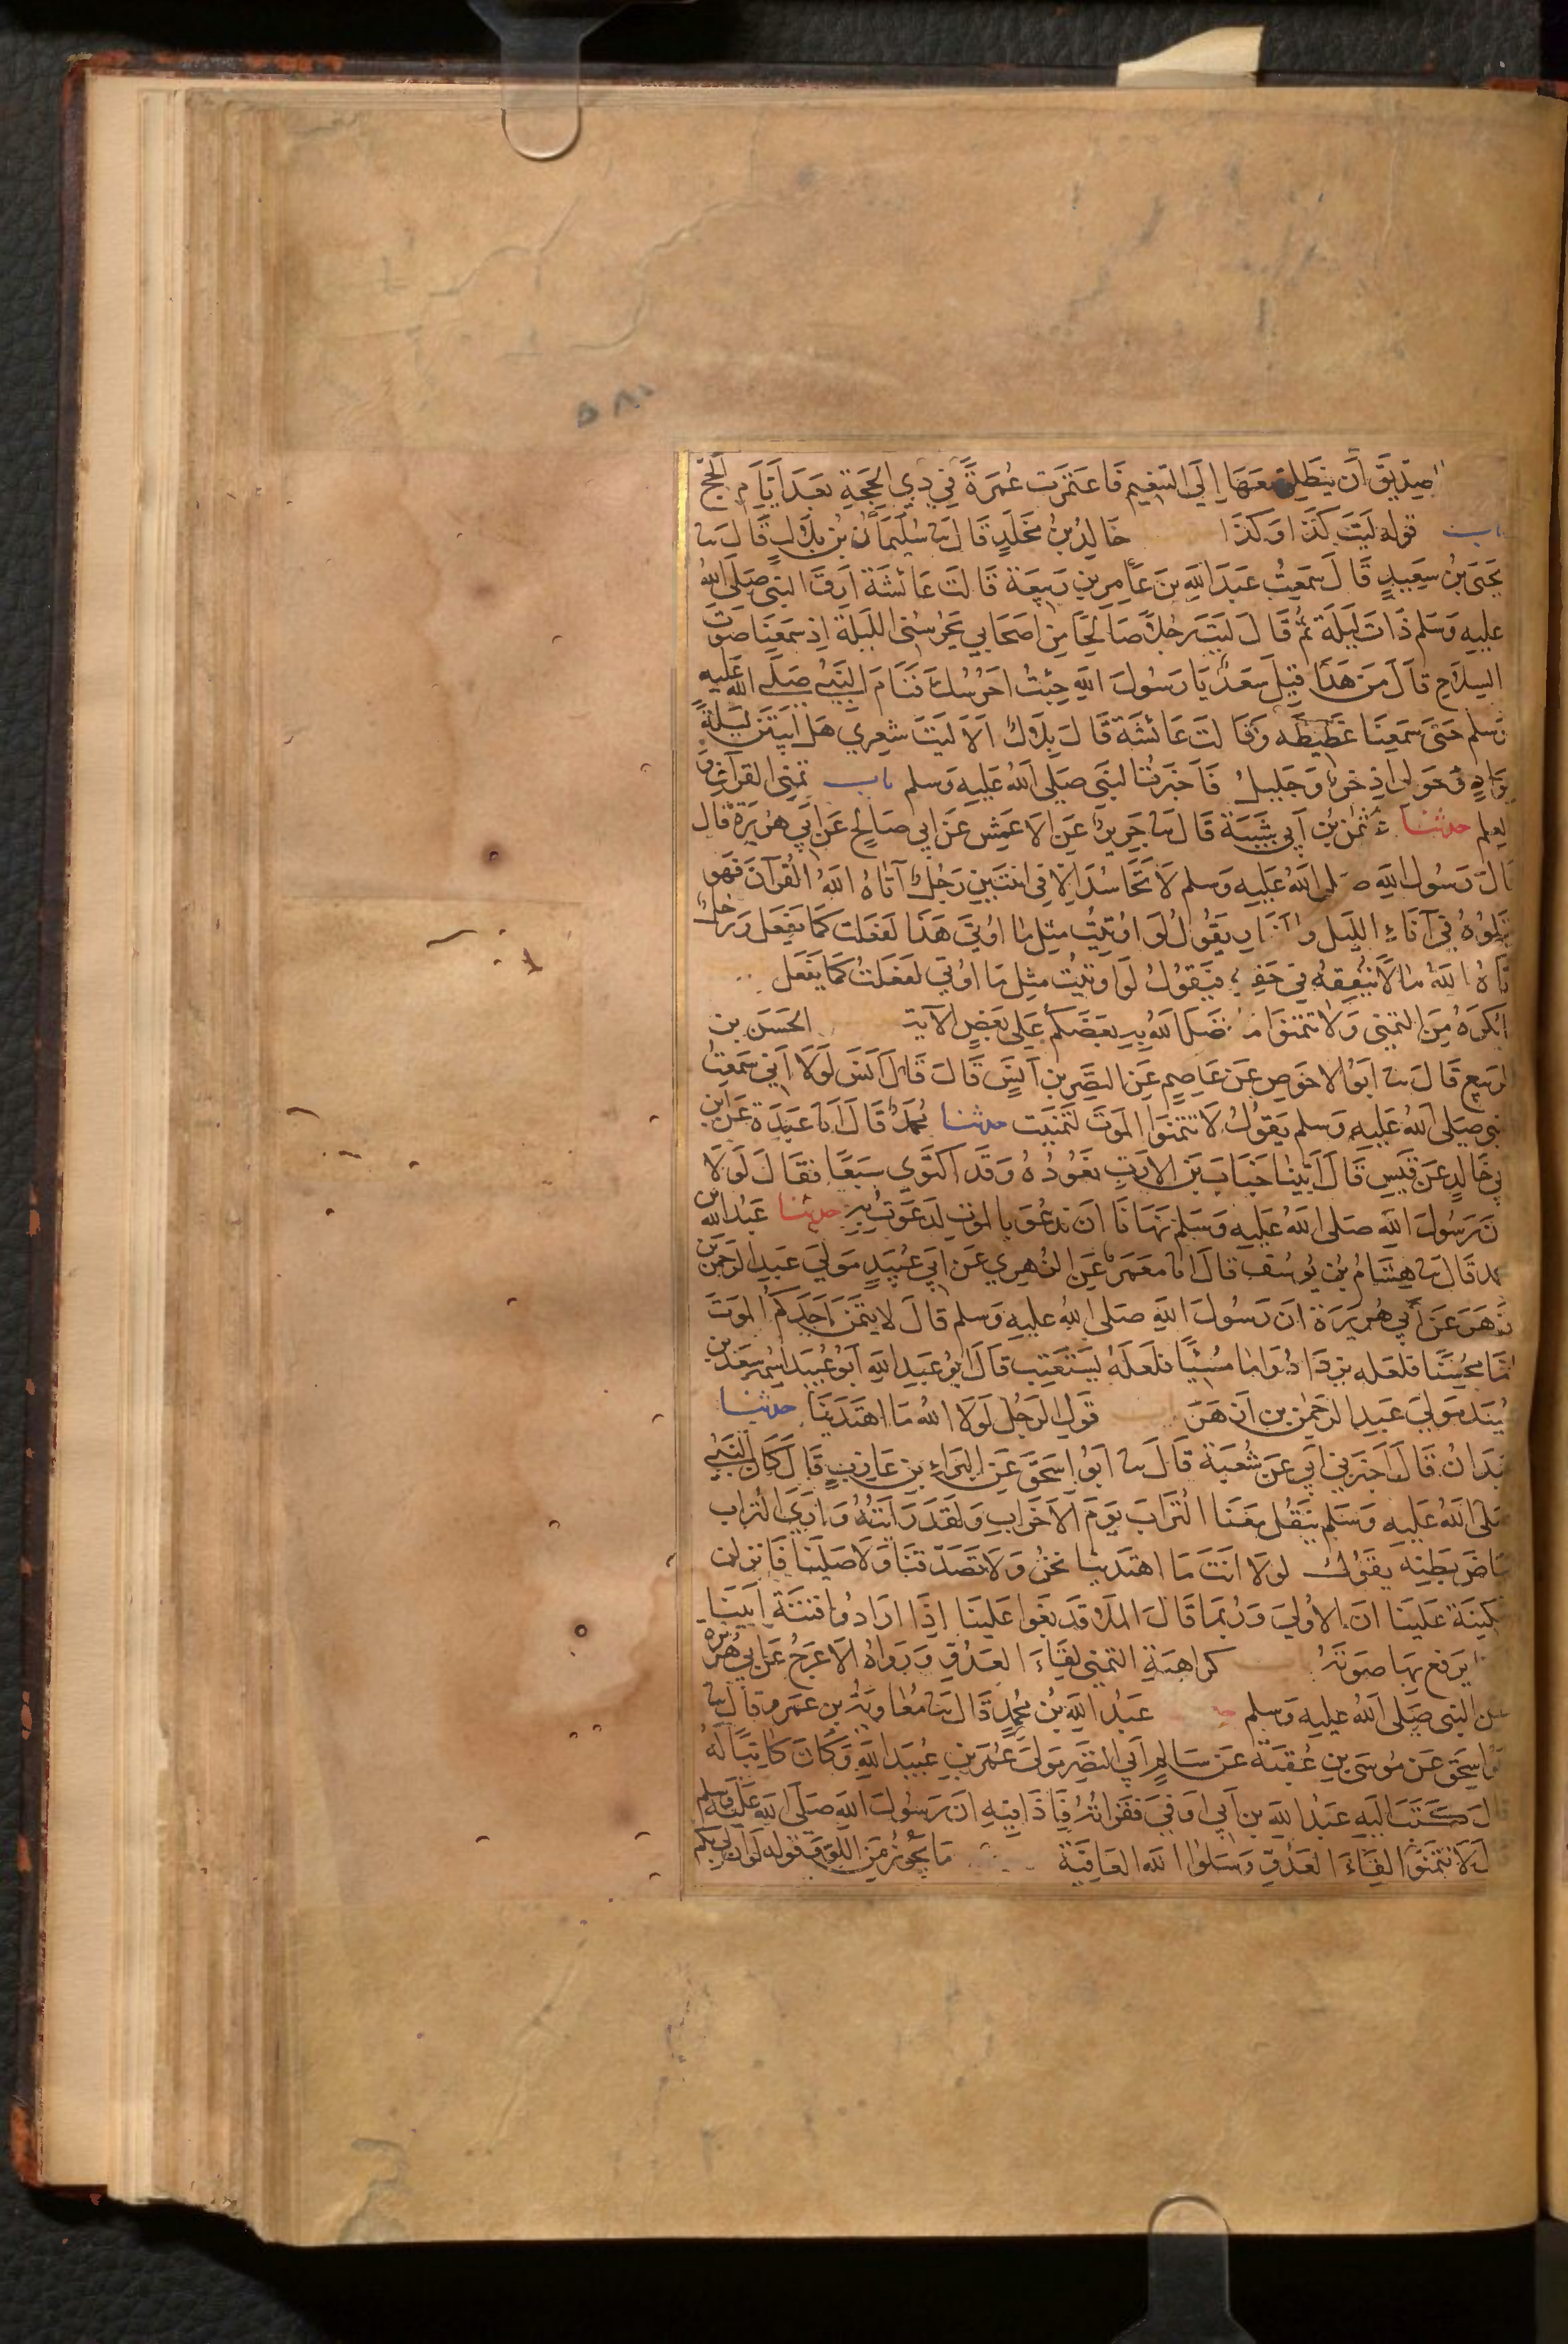 الصديق أن ينطلق معها إلى التنعيم فاعتمرت عمرة في ذي الحجة بعد أيام الحج
باب قوله ليت كذا وكذا خالد بن مخلد قال ثنا سليمان بن بلال قال ثنا
يحيى بن سعيد قال سمعت عبد الله بن عامر بن ربيعة قالت عائشة أرق النبي صلى الله
عليه وسلم ذات ليلة ثم قال ليت رجلا صالحا من أصحابي يحرسني الليلة إذ سمعنا صوت
السلاح قال من هذا قيل سعد يا رسول الله جئت أحرسك فنام النبي صلى الله عليه
وسلم حتى سمعنا غطيطه وقالت عائشة قال بلال ألا ليت شعري هل أبيتن ليلة
بواد وحولي إذخر وجليل فأخبرت النبي صلى الله عليه وسلم باب تمني القرآن و
العلم حدثنا عثمن بن أبي شيبة قال ثنا جرير عن الأعمش عن أبي صالح عن أبي هريرة قال
قال رسول الله صلى الله عليه وسلم لا تحاسد إلا في اثنتين رجل آتاه الله القرآن فهو
يتلوه في آناء الليل و يقول لو أوتيت مثل ما أوتي هذا لفعلت كما يفعل ورجل
آتاه الله مالا ينفقه في حقه فيقول لو أوتيت مثل ما أوتي لفعلت كما يفعل
يكره من التمني ولا تتمنوا ما فضل الله به بعضكم على بعض الآية الحسن بن
الربيع قال ثنا أبو الأحوص عن عاصم عن النضر بن أنس قال قال أنس لولا أني سمعت
النبي صلى الله عليه وسلم يقول لا تتمنوا الموت لتمنيت حدثنا محمد قال أنا عبدة عن ابن
أبي خالد عن قيس قال أتينا خباب بن الأرت نعوده وقد اكتوى سبعا فقال لولا
أن رسول الله صلى الله عليه وسلم نهانا أن ندعو بالموت لدعوت به حدثنا عبد الله بن
محمد قال ثنا هشام بن يوسف قال أنا معمر عن الزهري عن أبي عبيد مولى عبد الرحمن بن
أزهر عن أبي هريرة أن رسول الله صلى الله عليه وسلم قال لا يتمن أحدكم الموت
إما محسنا فلعله يزداد وإما مسيئا فلعله يستعتب قال أبو عبد الله أبو عبيد اسمه سعد بن
عبيد مولى عبد الرحمن بن أزهر قول الرجل لولا الله ما اهتدينا حدثنا
عبدان قال أخبرني أبي عن شعبة قال ثنا أبو إسحق عن البراء بن عازب قال كان النبي
صلى الله عليه وسلم ينقل معنا التراب يوم الأحزاب ولقد رأيته وارى التراب
بياض بطنه يقول لولا أنت ما اهتدينا نحن ولا تصدقنا ولا صلينا فأنزلن
سكينة علينا إن الأولى وربما قال الملا قد بغوا علينا إذا أرادوا فتنة أبينا
يرفع بها صوته كراهية التمني لقاء العدو ورواه الأعرج عن أبي هريرة
عن النبي صلى الله عليه وسلم عبد الله بن محمد قال ثنا معاوية بن عمرو قال ثنا
أبو إسحق عن موسى بن عقبة عن سالم أبي النضر مولى عمر بن عبيد الله وكان كاتبا له
قال كتب إليه عبد الله بن أبي أوفى فقرأته فإذا فيه أن رسول الله صلى الله عليه وسلم
قال لا تتمنوا لقاء العدو وسلوا الله العافية ما يجوز من اللو وقوله لو أن لي بكم